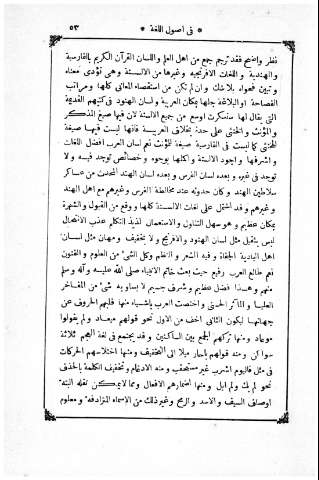 * فى اصول اللغة * ٥٣
نظر واضح فقد ترجم جمع من اهل العلم واللسان القرآن الكريم بالفارسية
والهندية و اللغات الافرنجية وغيرها من الالسنة وهى تؤدى معناه
وتبين فحواه بلاشك وان لم تكن من استقصاء المعانى كلها ومراتب
الفصاحة والبلاغة جلها بمكان العربية ولسان الهنود فى كتبهم القديمة
التى يقال لها سنسكرت اوسع من جميع الالسنة لان فيها صيغ المذكر
والمؤنث والخنثى على حدة بخلاف العربية فانها ليست فيها صيغة
للخنثى كما ليست فى الفارسية صيغة للمؤنث نعم لسان العرب افضل اللغات
و اشرفها و اجود الالسنة و اكملها بوجوه و خصائص توجد فيه و لا
توجد فى غيره و بعده لسان الفرس و بعده لسان الهند المحدث من عساكر
سلاطين الهند وكان حدوثه عند مخالطة الفرس وغيرهم مع اهل الهند
وغيرهم و قد اشتمل على لغات الالسنة كلها و وقع من القبول والشهرة
بمكان عظيم و هو سهل التناول والاستعمال لذيذ التكلم عذب الاتصال
ليس بثقيل مثل لسان الهنود و الافرنج و لا بخفيف و مهان مثل لسان
اهل البادية الجفاة و فيه الشعر و النظم وكل الشئ من العلوم و الفنون
نعم طالع العرب رفيع حيث بعث خاتم الانبياء صلى الله عليه و آله و سلم
منهم و هـذا فضل عظيم و شرف جسيم لا يساويه شئ من المفاخر
العليا و المآثر الحسنى و اختصت العرب باشياء منها قلبهم الحروف عن
جهاتها ليكون الثانى اخف من الاول نحو قولهم ميعاد و لم يقولوا
موعاد ومنها تركهم الجمع بين الساكنين و قد يجتمع فى لغة العجم ثلاثة
سواكن ومنه قولهم ياحار ميلا الى التخفيف ومنها اختلاسهم الحركات
فى مثل فاليوم اشرب غير مستحقب ومنه الادغام وتخفيف الكلمة بالحذف
نحو لم يك ولم ابل ومنها اضمارهم الافعال ومما لا يمكن نقله البتة
اوصاف السيف و الاسد و الرمح وغير ذلك من الاسماء المترادفة و معلوم